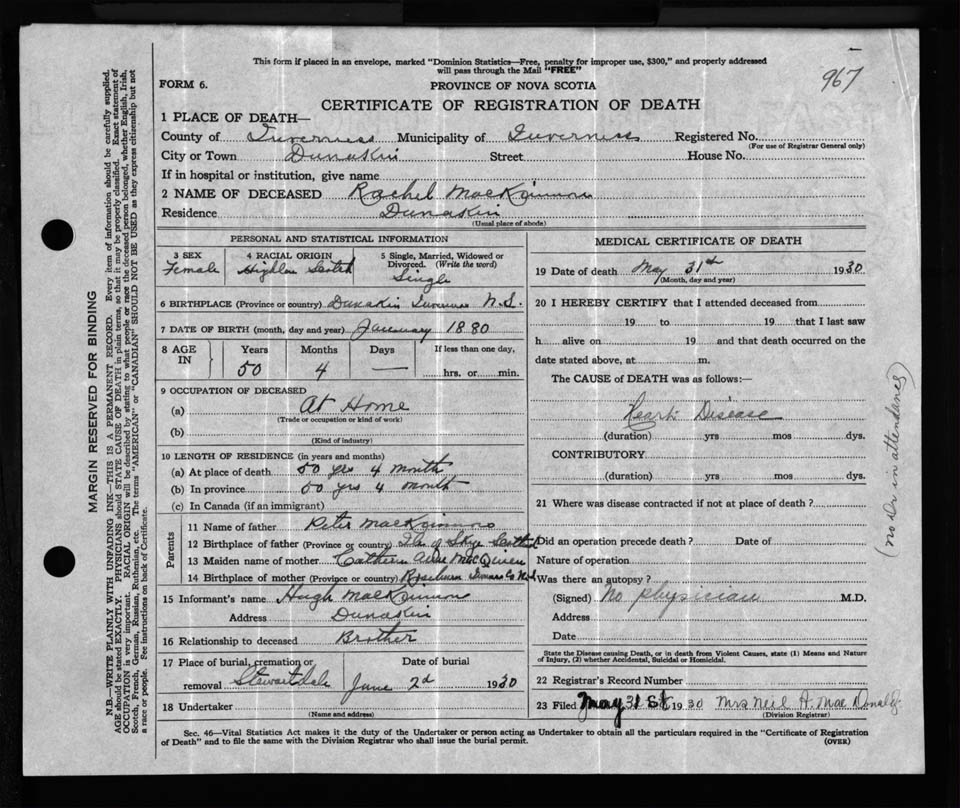 967
This form if placed in an envelope, marked "Dominion Statistics—Free, penalty for improper use, $300," and properly addressed
will pass through the Mail "FREE"
FORM 6.
PROVINCE OF NOVA SCOTIA
CERTIFICATE OF REGISTRATION OF DEATH
1 PLACE OF DEATH—
County of Inverness Municipality of Inverness Registered No.
(For use of Registrar General only)
City or Town Dunakin Street House No.
If in hospital or institution, give name
2 NAME OF DECEASED Rachel MacKinnon
Residence Dunakin
(Usual place of abode)
PERSONAL AND STATISTICAL INFORMATION
3 SEX 4 RACIAL ORIGIN 5 Single, Married, Widowed or Divorced. (Write the word)
Female Scotch Single
6 BIRTHPLACE (Province or country) Dunakin Inverness N.S.
7 DATE OF BIRTH (month, day and year) January 1880
8 AGE IN Years Months Days If less than one day,
50 4 — hrs. or min.
9 OCCUPATION OF DECEASED
(a) At Home
(Trade or occupation or kind of work)
(b)
(Kind of industry)
10 LENGTH OF RESIDENCE (in years and months)
(a) At place of death 50 yrs 4 month
(b) In province 50 yrs 4 month
(c) In Canada (if an immigrant)
Parents
11 Name of father Peter MacKinnon
12 Birthplace of father (Province or country) of Skye
13 Maiden name of mother MacQueen
14 Birthplace of mother (Province or country)
15 Informant's name Hugh MacKinnon
Address Dunakin
16 Relationship to deceased Brother
17 Place of burial, cremation or removal Stewartdale Date of burial June 2d 1930
18 Undertaker
(Name and address)
MEDICAL CERTIFICATE OF DEATH
19 Date of death May 31st 1930
(Month, day and year)
20 I HEREBY CERTIFY that I attended deceased from
19 to 19 that I last saw
h alive on 19 and that death occurred on the
date stated above, at m.
The CAUSE of DEATH was as follows:—
Heart Disease
(duration) yrs mos dys.
CONTRIBUTORY
(duration) yrs mos dys.
21 Where was disease contracted if not at place of death ?
Did an operation precede death ? Date of
Nature of operation
Was there an autopsy ?
(Signed) No physician M.D.
Address
Date
State the Disease causing Death, or in death from Violent Causes, state (1) Means and Nature
of Injury, (2) whether Accidental, Suicidal or Homicidal.
22 Registrar's Record Number
23 Filed May 31 St 1930 Mrs Neil A. MacDonald
(Division Registrar)
(no Dr in attendance)
Sec. 46—Vital Statistics Act makes it the duty of the Undertaker or person acting as Undertaker to obtain all the particulars required in the "Certificate of Registration
of Death" and to file the same with the Division Registrar who shall issue the burial permit.
(OVER)
MARGIN RESERVED FOR BINDING
N.B.—WRITE PLAINLY WITH UNFADING INK—THIS IS A PERMANENT RECORD. Every item of information should be carefully supplied.
AGE should be stated EXACTLY. PHYSICIANS should STATE CAUSE OF DEATH in plain terms, so that it may be properly classified. Exact statement of
OCCUPATION is very important. RACIAL ORIGIN will be described by stating to what people or race the deceased person belonged, whether English, Irish,
Scotch, French, German, Russian, Ruthenian, etc. The terms "AMERICAN" or "CANADIAN" SHOULD NOT BE USED as they express citizenship but not
a race or people. See instructions on back of Certificate.